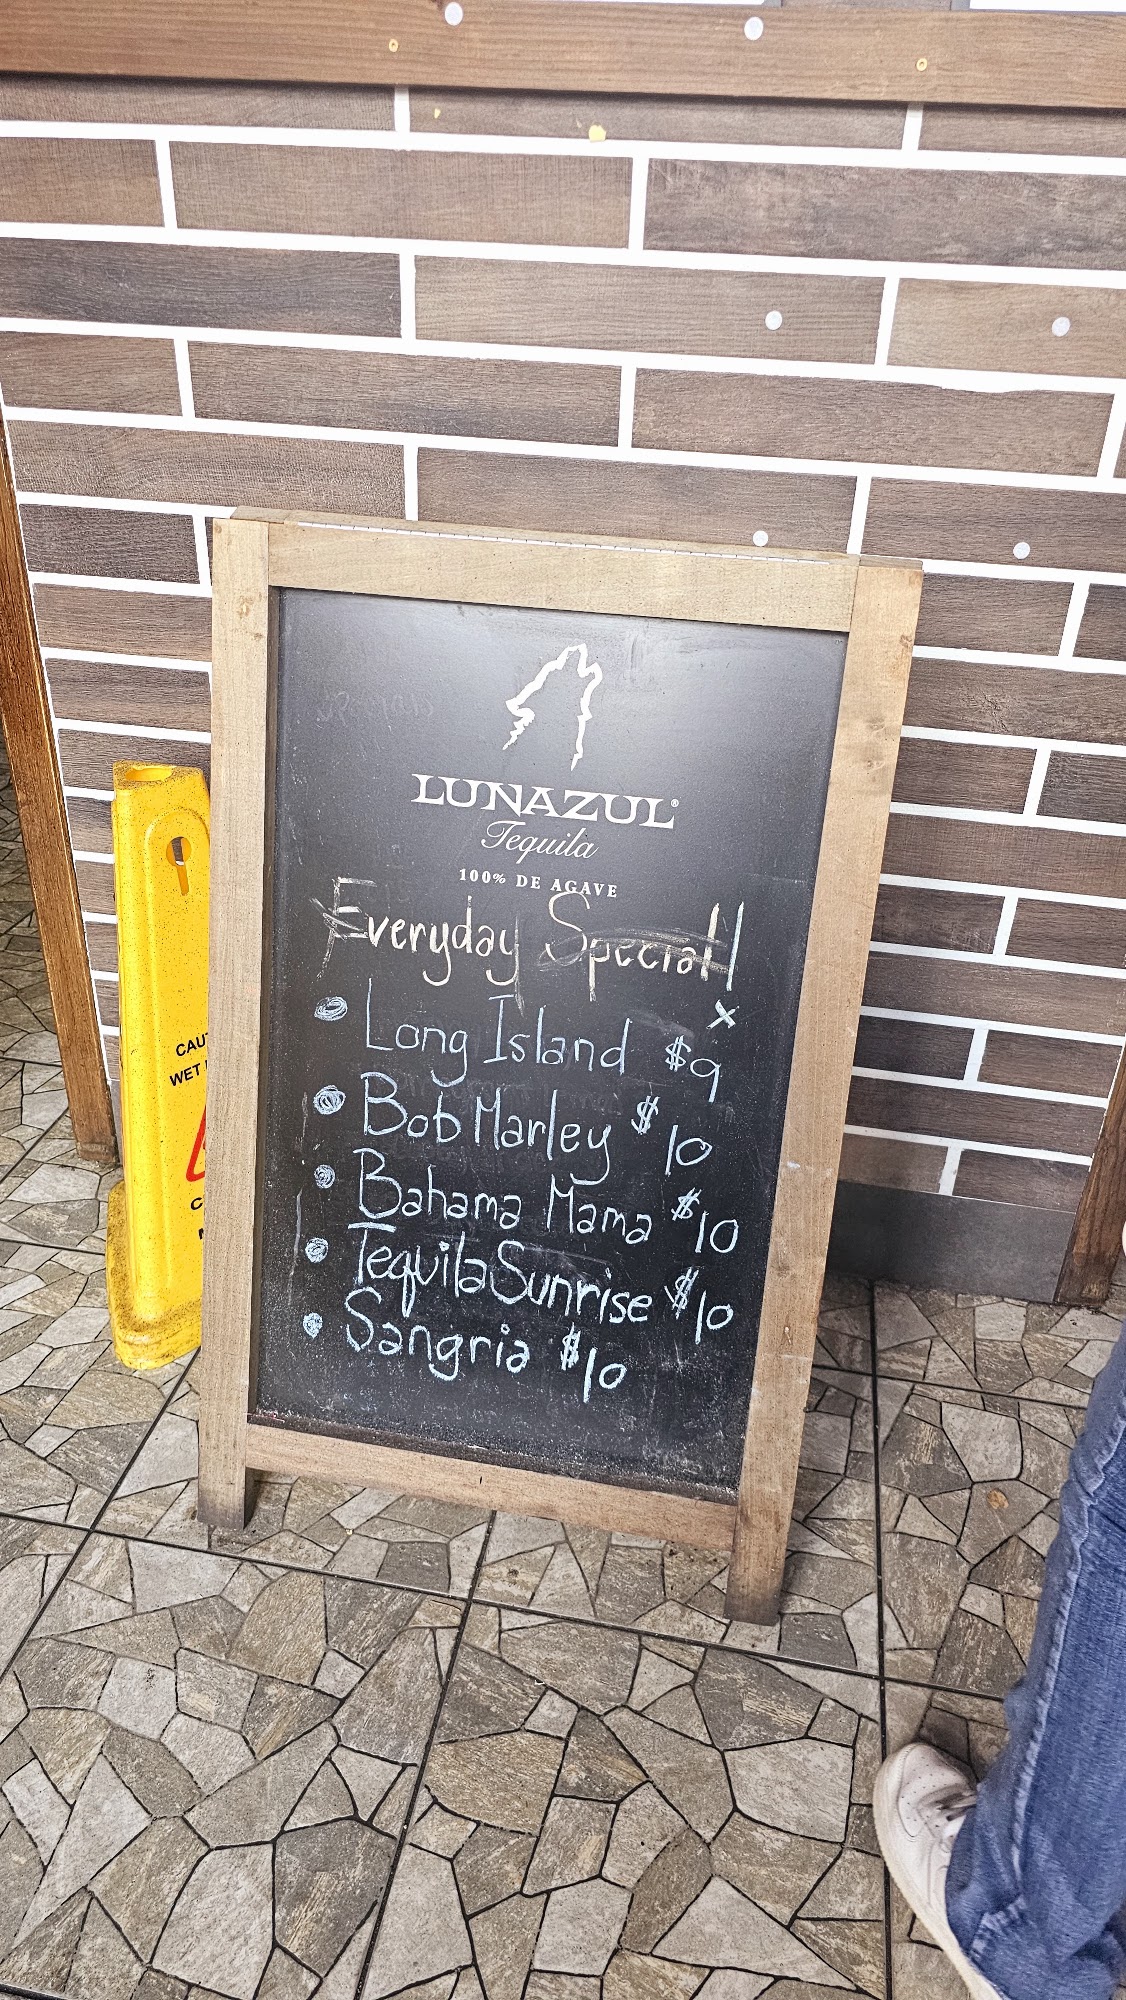 LUNAZUL®
Tequila
100% DE AGAVE
Everyday Special!
Long Island $9
Bob Marley $10
Bahama Mama $10
Tequila Sunrise $10
Sangria $10
CAUT
WET